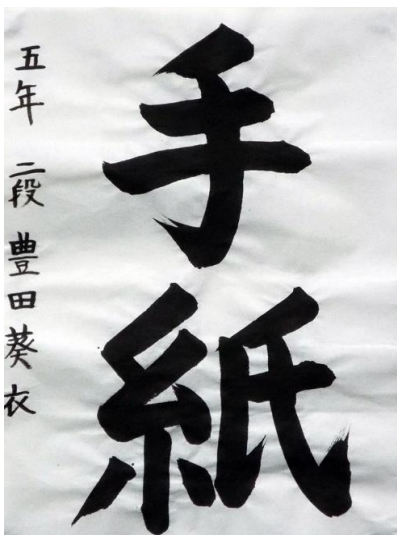 手紙
五年 二段 豊田葵衣